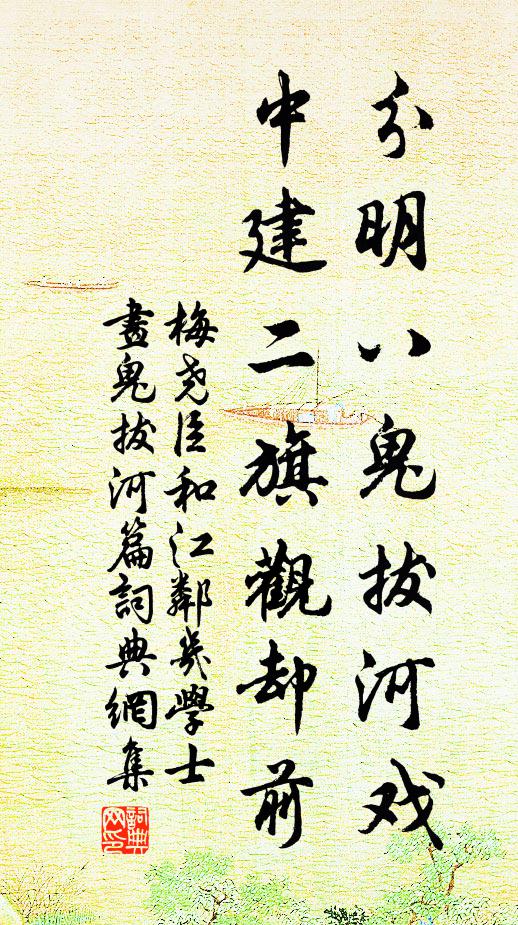 分明八鬼拔河戏
中建二旗觀却前
梅尧臣和江鄰幾學士
畫鬼拔河篇詞典網集
詞典
网印